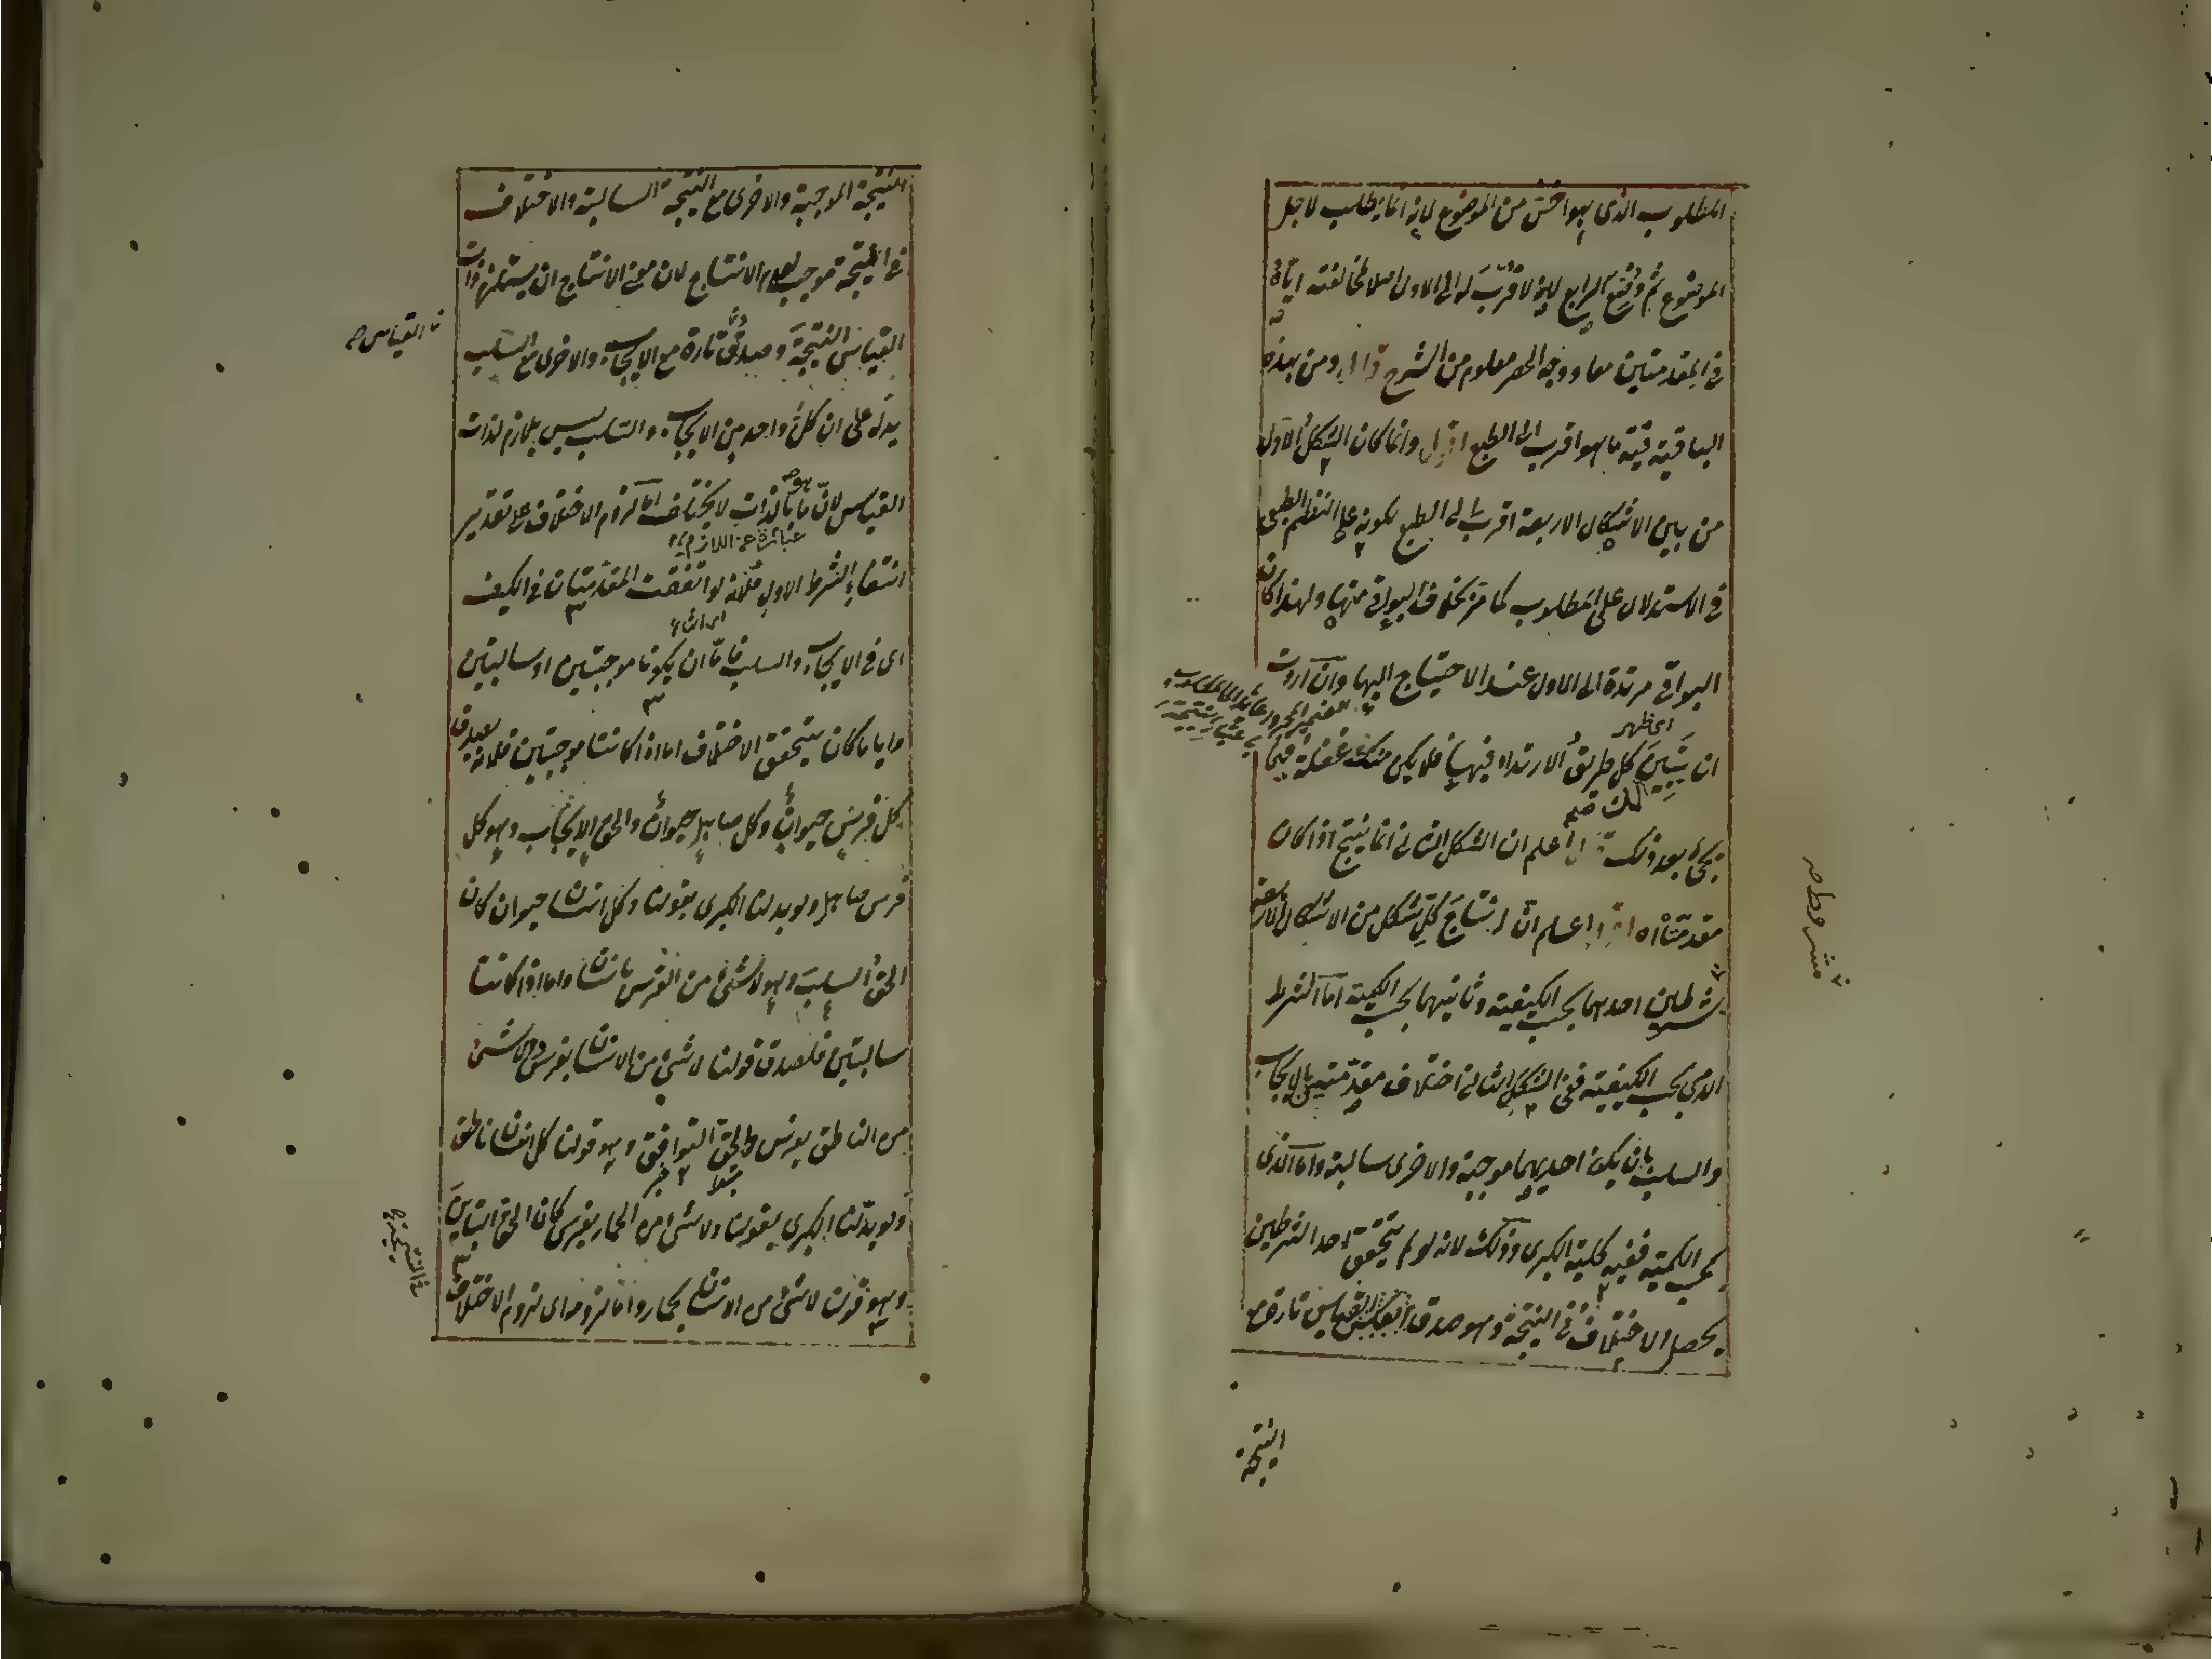 المطلوب الذى هو اخسّ من الموضوع لانه انما يطلب لاجل
الموضوع ثم وُضِعَ الرابع لانه لا قُرْبَ له الى الاول اصلا لمخالفته اياه
فى المقدمتين معا ووجه الحصر معلوم من الشرح قال ومن هذه
الباقية قيّة ما هو اقرب الى الطبع اقول وانما كان الشكل الاول
من بين الاشكال الاربعة اقرب الى الطبع لكونه على النظم الطبيعى
فى الاستدلال على المطلوب كما مرّ بخلاف البواقى منها ولهذا كان
البواقى مرتدة الى الاول عند الاحتياج اليها وان اردت
اى ظهر
الضمير المجرور عائد الى المطلوب
باعتبار النتيجة
ان تبيّن كل طريق الارتداد فيها فلا يكن منك غفلة فيما
لك
يجئ بعد ذلك قال اعلم ان الشكل الثانى انما ينتج اذا كان
مقدمتاه اقول اعلم انّ انتاجَ كلّ شكل من الاشكال الاربعة
شرطين احدهما بحسب الكيفية وثانيهما بحسب الكمية اما الشرط
مشروط صح
الذى بحسب الكيفية ففى الشكل الثانى اختلاف مقدمتين بالايجاب
والسلب بان يكون احديهما موجبة والاخرى سالبة واما الذى
بحسب الكمية ففيه كلية الكبرى وذلك لانه لو لم يتحقق احد الشرطين
يحصل الاختلاف فى النتيجة وهو صدق القياس تارة مع
النتيجة
النتيجة الموجبة والاخرى مع النتيجة السالبة والاختلاف
فى النتيجة موجب لعدم الانتاج لان معنى الانتاج ان يستلزم ذات
القياس النتيجة وصدق تارة مع الايجاب والاخرى مع السلب
القياس صح
يدلّ على ان كلّ واحد من الايجاب والسلب ليس بلازم لذات
القياس لانّ ما بالذات لا يختلف امّا لزوم الاختلاف على تقدير
عبارة عن اللازم
انتفاء الشرط الاول فلانه لو اتفقت المقدمتان فى الكيف
اى فى الايجاب والسلب فامّا ان يكونا موجبتين او سالبتين
وايا ما كان يتحقق الاختلاف اما اذا كانتا موجبتين فلانه يصدق
كل فرس حيوان وكل صاهل حيوان والحق الايجاب وهو كل
فرس صاهل ولو بدلنا الكبرى بقولنا وكل انسان حيوان كان
الحق السلب وهو لا شئ من الفرس بانسان واما اذا كانتا
سالبتين فلصدق قولنا لا شئ من الانسان بفرس ولا شئ
من الناطق بفرس والحق التوافق وهو قولنا كل انسان ناطق
ولو بدّلنا الكبرى بقولنا ولا شئ من الحمار بفرس كان الحق التباين
وهو قولنا لا شئ من الانسان بحمار وانما لزوم اى لزوم الاختلاف